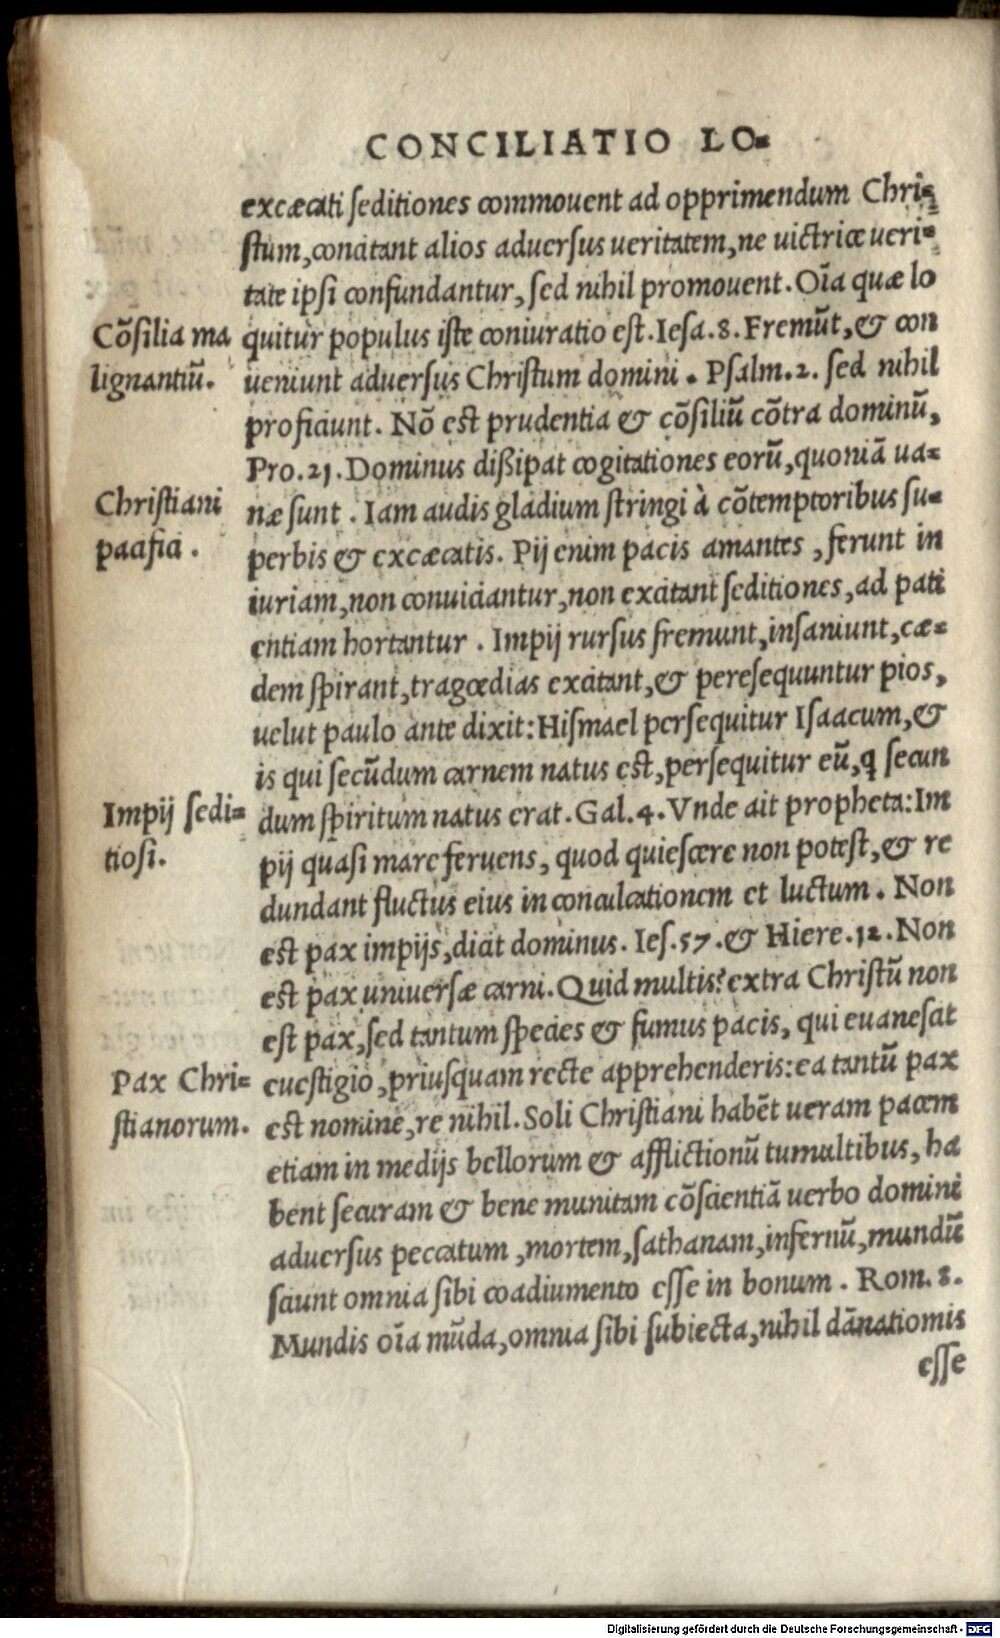 CONCILIATIO LO=
excæcati seditiones commouent ad opprimendum Chri=
stum, concitant alios aduersus ueritatem, ne uictrice ueri=
tate ipsi confundantur, sed nihil promouent. Oĩa quæ lo
Cõsilia ma
quitur populus iste coniuratio est. Iesa. 8. Fremũt, & con
lignantiũ.
ueniunt aduersus Christum domini. Psalm. 2. sed nihil
proficiunt. Nõ est prudentia & cõsiliũ cõtra dominũ,
Pro. 21. Dominus dißipat cogitationes eorũ, quoniã ua=
Christiani
næ sunt. Iam audis gladium stringi à cõtemptoribus su=
pacifici.
perbis & excæcatis. Pij enim pacis amantes, ferunt in
iuriam, non conuiciantur, non excitant seditiones, ad pati
entiam hortantur. Impij rursus fremunt, insaniunt, cæ=
dem spirant, tragœdias excitant, & peresequuntur pios,
uelut paulo ante dixit: Hismael persequitur Isaacum, &
is qui secũdum carnem natus est, persequitur eũ, q secun
Impij sedi=
dum spiritum natus erat. Gal. 4. Vnde ait propheta: Im
tiosi.
pij quasi mare feruens, quod quiescere non potest, & re
dundant fluctus eius in conculcationem et luctum. Non
est pax impijs, dicit dominus. Ies. 57. & Hiere. 12. Non
est pax uniuersæ carni. Quid multis? extra Christũ non
est pax, sed tantum species & fumus pacis, qui euanescit
Pax Chri=
euestigio, priusquam recte apprehenderis: ea tantũ pax
stianorum.
est nomine, re nihil. Soli Christiani habẽt ueram pacem
etiam in medijs bellorum & afflictionũ tumultibus, ha
bent securam & bene munitam cõscientiã uerbo domini
aduersus peccatum, mortem, sathanam, infernũ, mundũ
sciunt omnia sibi coadiumento esse in bonum. Rom. 8.
Mundis oĩa mũda, omnia sibi subiecta, nihil dãnationis
esse
Digitalisierung gefördert durch die Deutsche Forschungsgemeinschaft - DFG